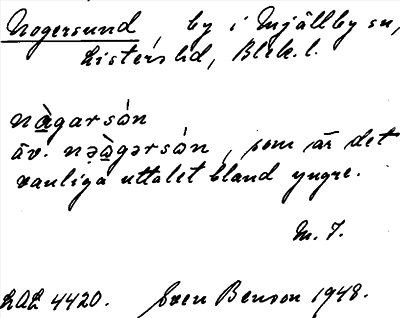 Nogersund, by i Mjällby sn,
Listers hd, Blek. l.
nàgarsón
äv. nəàgərsón, som är det
vanliga uttalet bland yngre.
M. J.
LAL 4420. Sven Benson 1948.